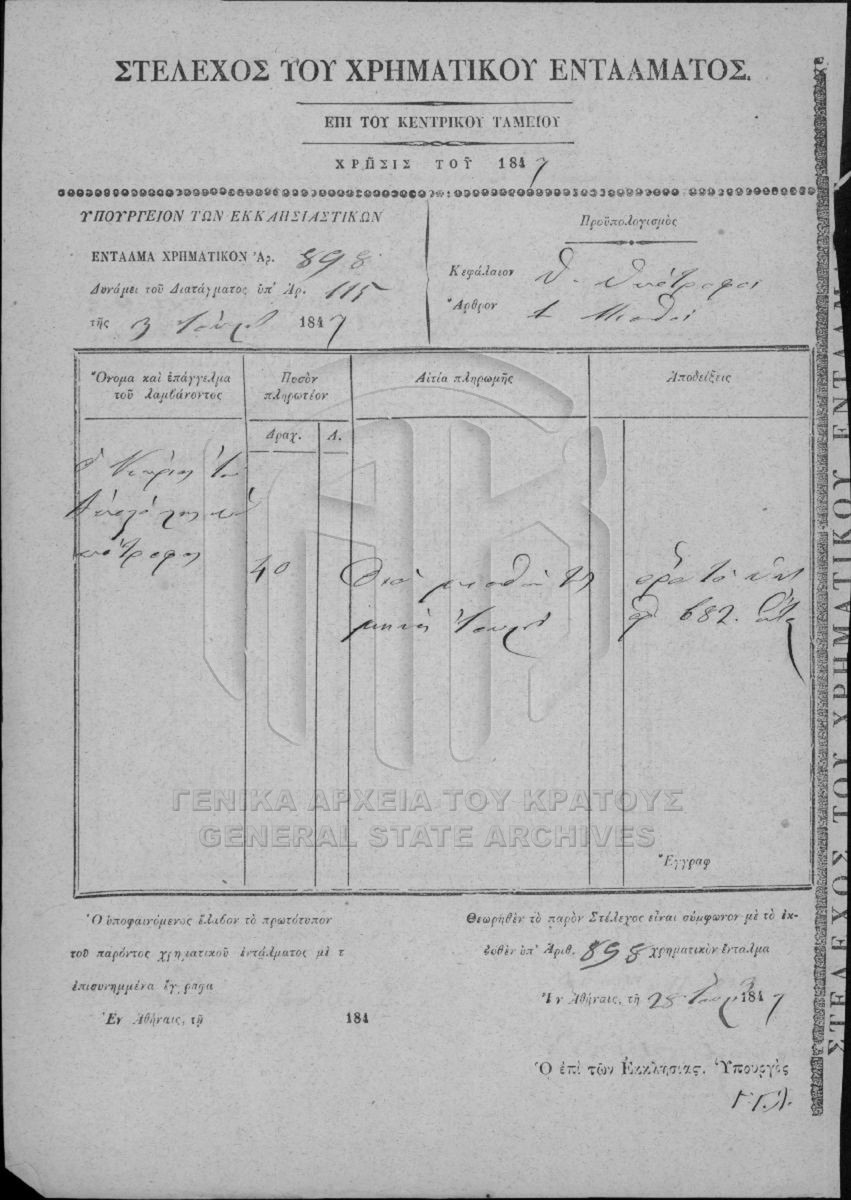 ΣΤΕΛΕΧΟΣ ΤΟΥ ΧΡΗΜΑΤΙΚΟΥ ΕΝΤΑΛΜΑΤΟΣ.
ΕΠΙ ΤΟΥ ΚΕΝΤΡΙΚΟΥ ΤΑΜΕΙΟΥ
ΧΡΗΣΙΣ ΤΟΥ 1847
ΥΠΟΥΡΓΕΙΟΝ ΤΩΝ ΕΚΚΛΗΣΙΑΣΤΙΚΩΝ
ΕΝΤΑΛΜΑ ΧΡΗΜΑΤΙΚΟΝ Ἀρ. 898
Δυνάμει τοῦ Διατάγματος ὑπ' Ἀρ. 115
τῆς 3 1847
Προϋπολογισμὸς
Κεφάλαιον Θ. Ὑπότροφοι
Ἄρθρον 1 Μισθοὶ
Ὄνομα καὶ ἐπάγγελμα
τοῦ λαμβάνοντος
Ποσὸν
πληρωτέον
Αἰτία πληρωμῆς
Ἀποδείξεις
Δραχ. Λ.
ὑπότροφος
40
Διὰ μισθὸν τοῦ
μηνὸς
682.
ΓΕΝΙΚΑ ΑΡΧΕΙΑ ΤΟΥ ΚΡΑΤΟΥΣ
GENERAL STATE ARCHIVES
Ἔγγραφ
Ὁ ὑποφαινόμενος ἔλαβον τὸ πρωτότυπον
τοῦ παρόντος χρηματικοῦ ἐντάλματος μὲ τ
ἐπισυνημμένα ἔγγραφα
Ἐν Ἀθήναις, τῇ 184
Θεωρηθὲν τὸ παρὸν Στέλεχος εἶναι σύμφωνον μὲ τὸ ἐκ-
δοθὲν ὑπ' Ἀριθ. 898 χρηματικὸν ἔνταλμα
Ἐν Ἀθήναις, τῇ 28 1847
Ὁ ἐπὶ τῶν Ἐκκλησιας. Ὑπουργὸς
ΣΤΕΛΕΧΟΣ ΤΟΥ ΧΡΗΜΑΤΙΚΟΥ ΕΝΤΑΛΜΑ